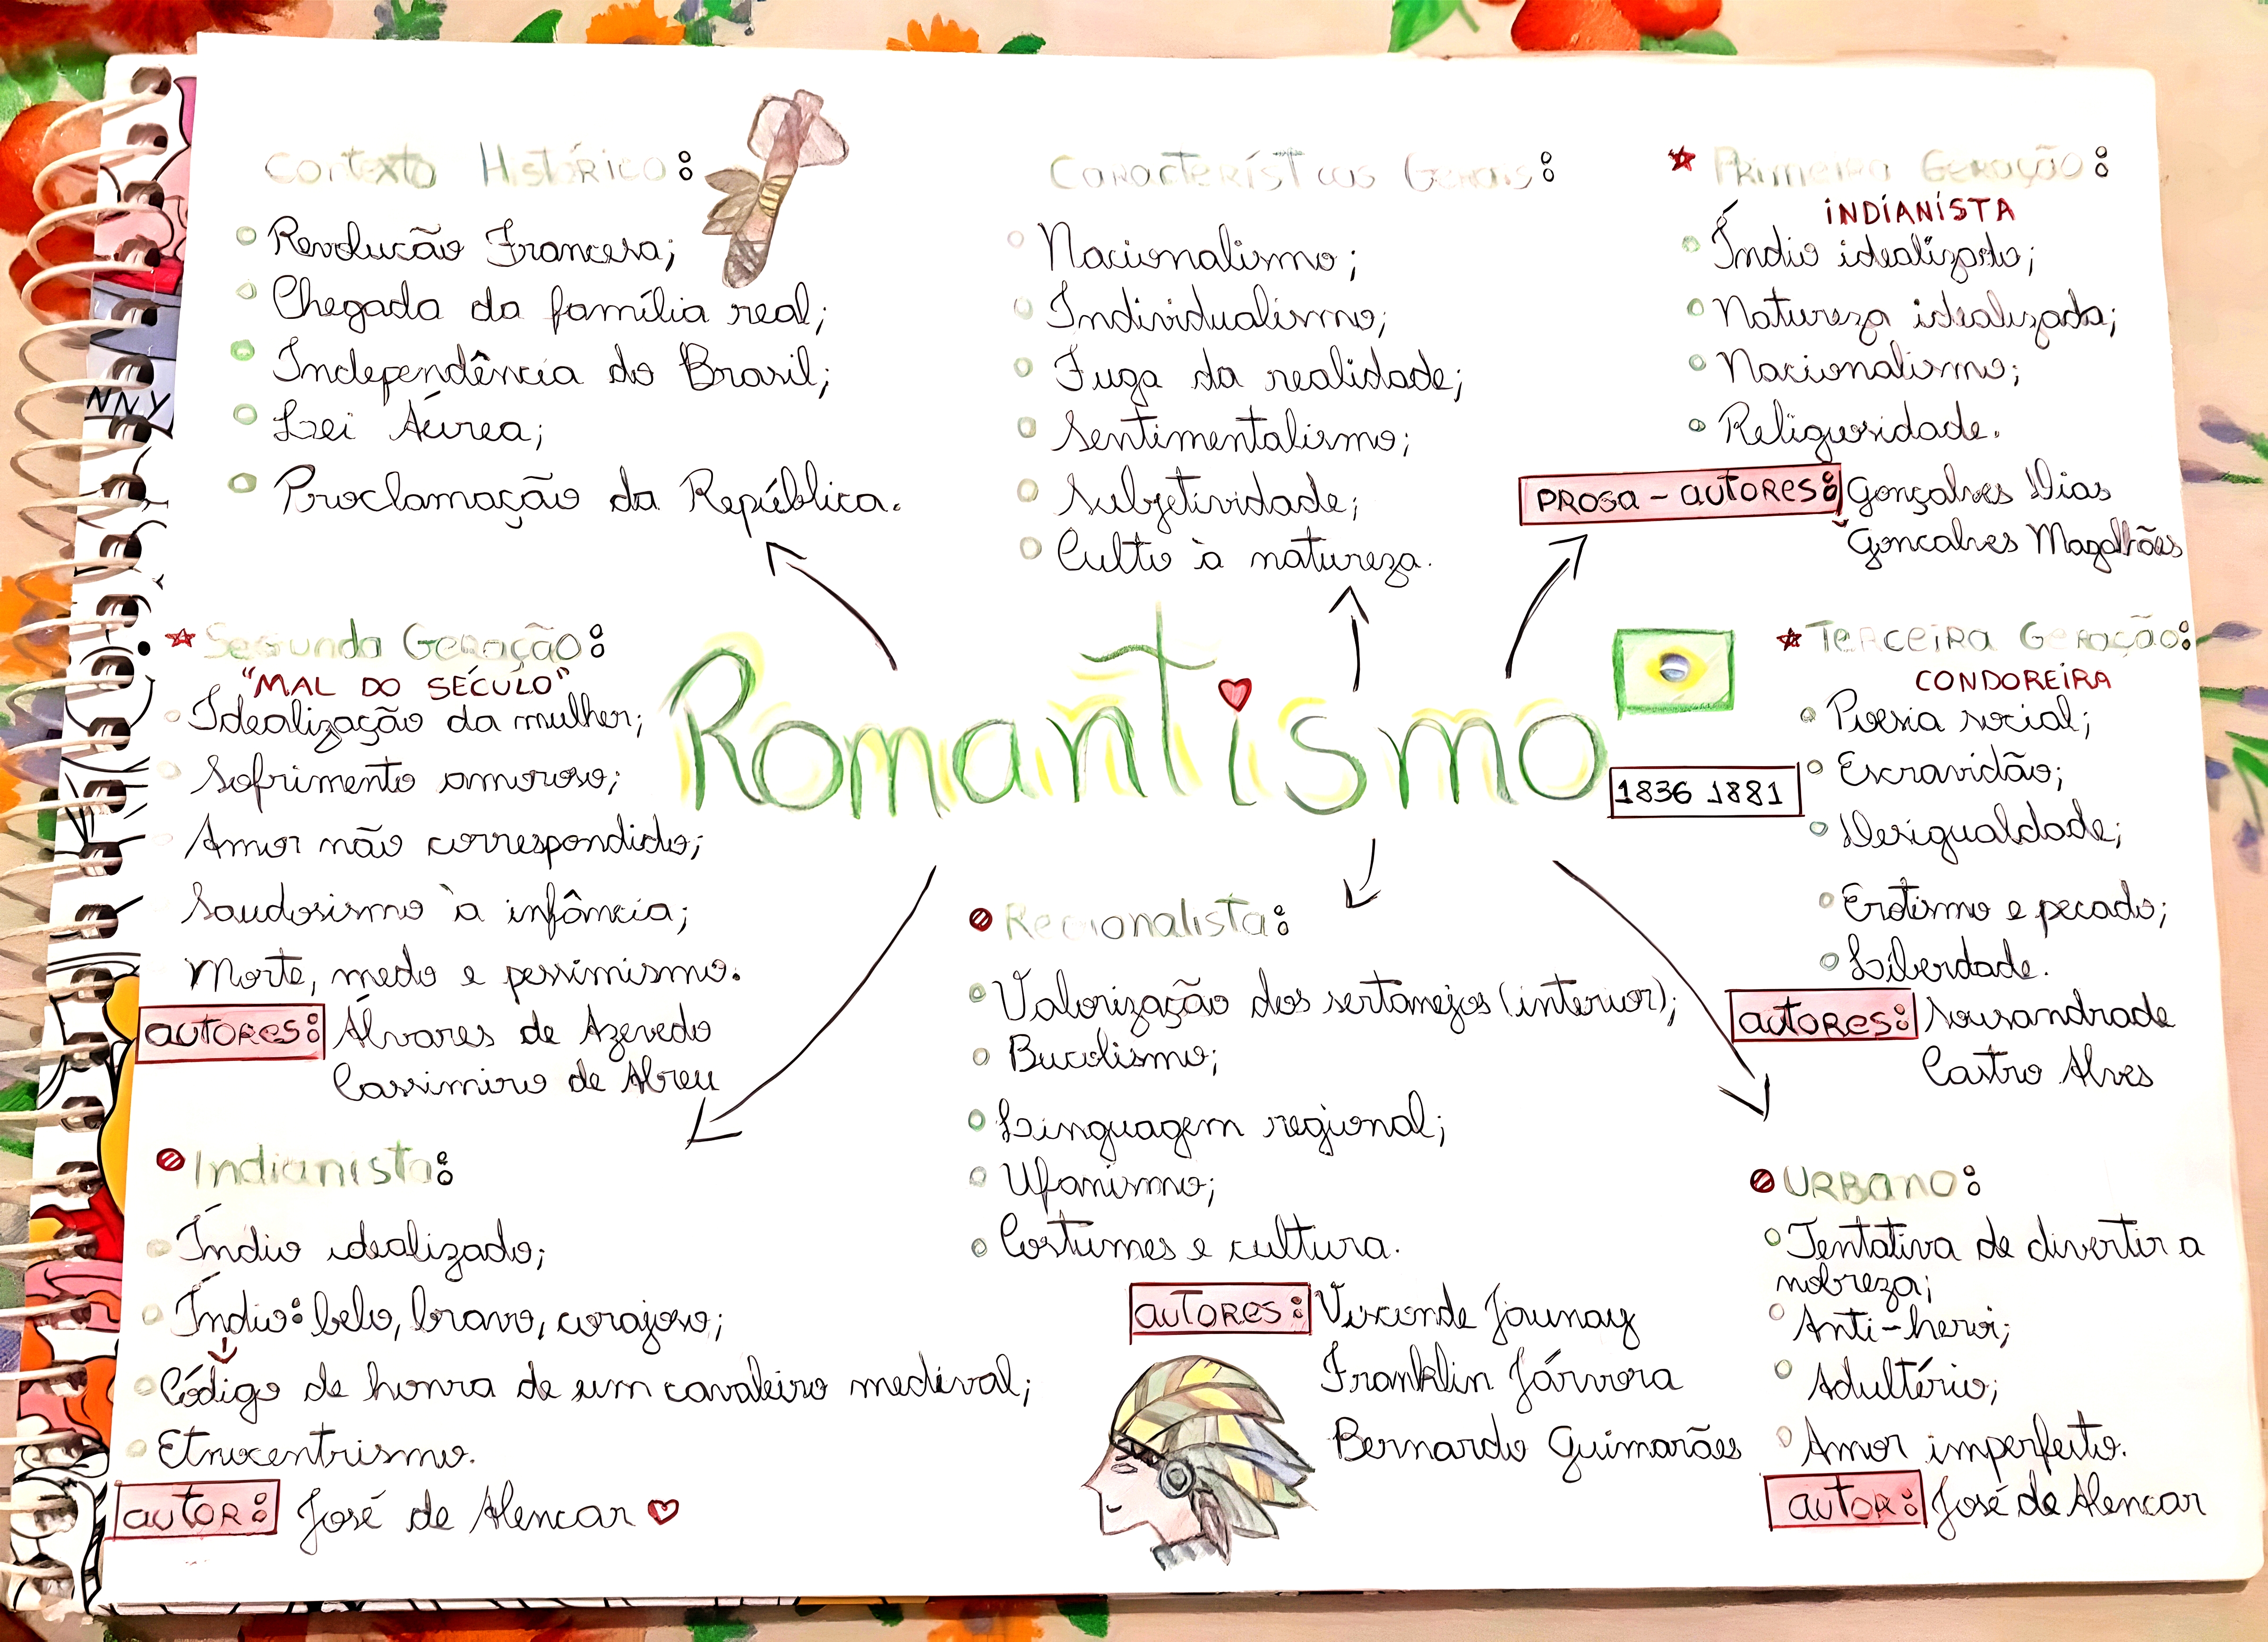 Contexto Histórico:
Revolucão Francesa;
Chegada da família real;
Independência do Brasil;
Lei Áurea;
Proclamação da República.
Características Gerais:
Nacionalismo;
Individualismo;
Fuga da realidade;
Sentimentalismo;
Subjetividade;
Culto à natureza.
Primeira Geração:
INDIANISTA
Índio idealizado;
Natureza idealizada;
Nacionalismo;
Religiosidade.
PROSA - AUTORES: Gonçalves Dias
Goncalves Magalhães
Segunda Geração:
"MAL DO SÉCULO"
Idealização da mulher;
Sofrimento amoroso;
Amor não correspondido;
Saudosismo à infância;
Morte, medo e pessimismo.
AUTORES: Álvares de Azevedo
Cassimiro de Abreu
Romantismo
1836 1881
Terceira Geração:
CONDOREIRA
Poesia social;
Escravidão;
Desigualdade;
Erotismo e pecado;
Liberdade.
AUTORES: Sousandrade
Castro Alves
Regionalista:
Valorização dos sertanejos (interior);
Bucolismo;
Linguagem regional;
Ufanismo;
Costumes e cultura.
AUTORES: Visconde Taunay
Franklin Távora
Bernardo Guimarães
Indianista:
Índio idealizado;
Índio: belo, bravo, corajoso;
Código de honra de um cavaleiro medieval;
Etnocentrismo.
AUTOR: José de Alencar
Urbano:
Tentativa de divertir a
nobreza;
Anti-heroi;
Adultério;
Amor imperfeito.
AUTOR: José de Alencar
NNY